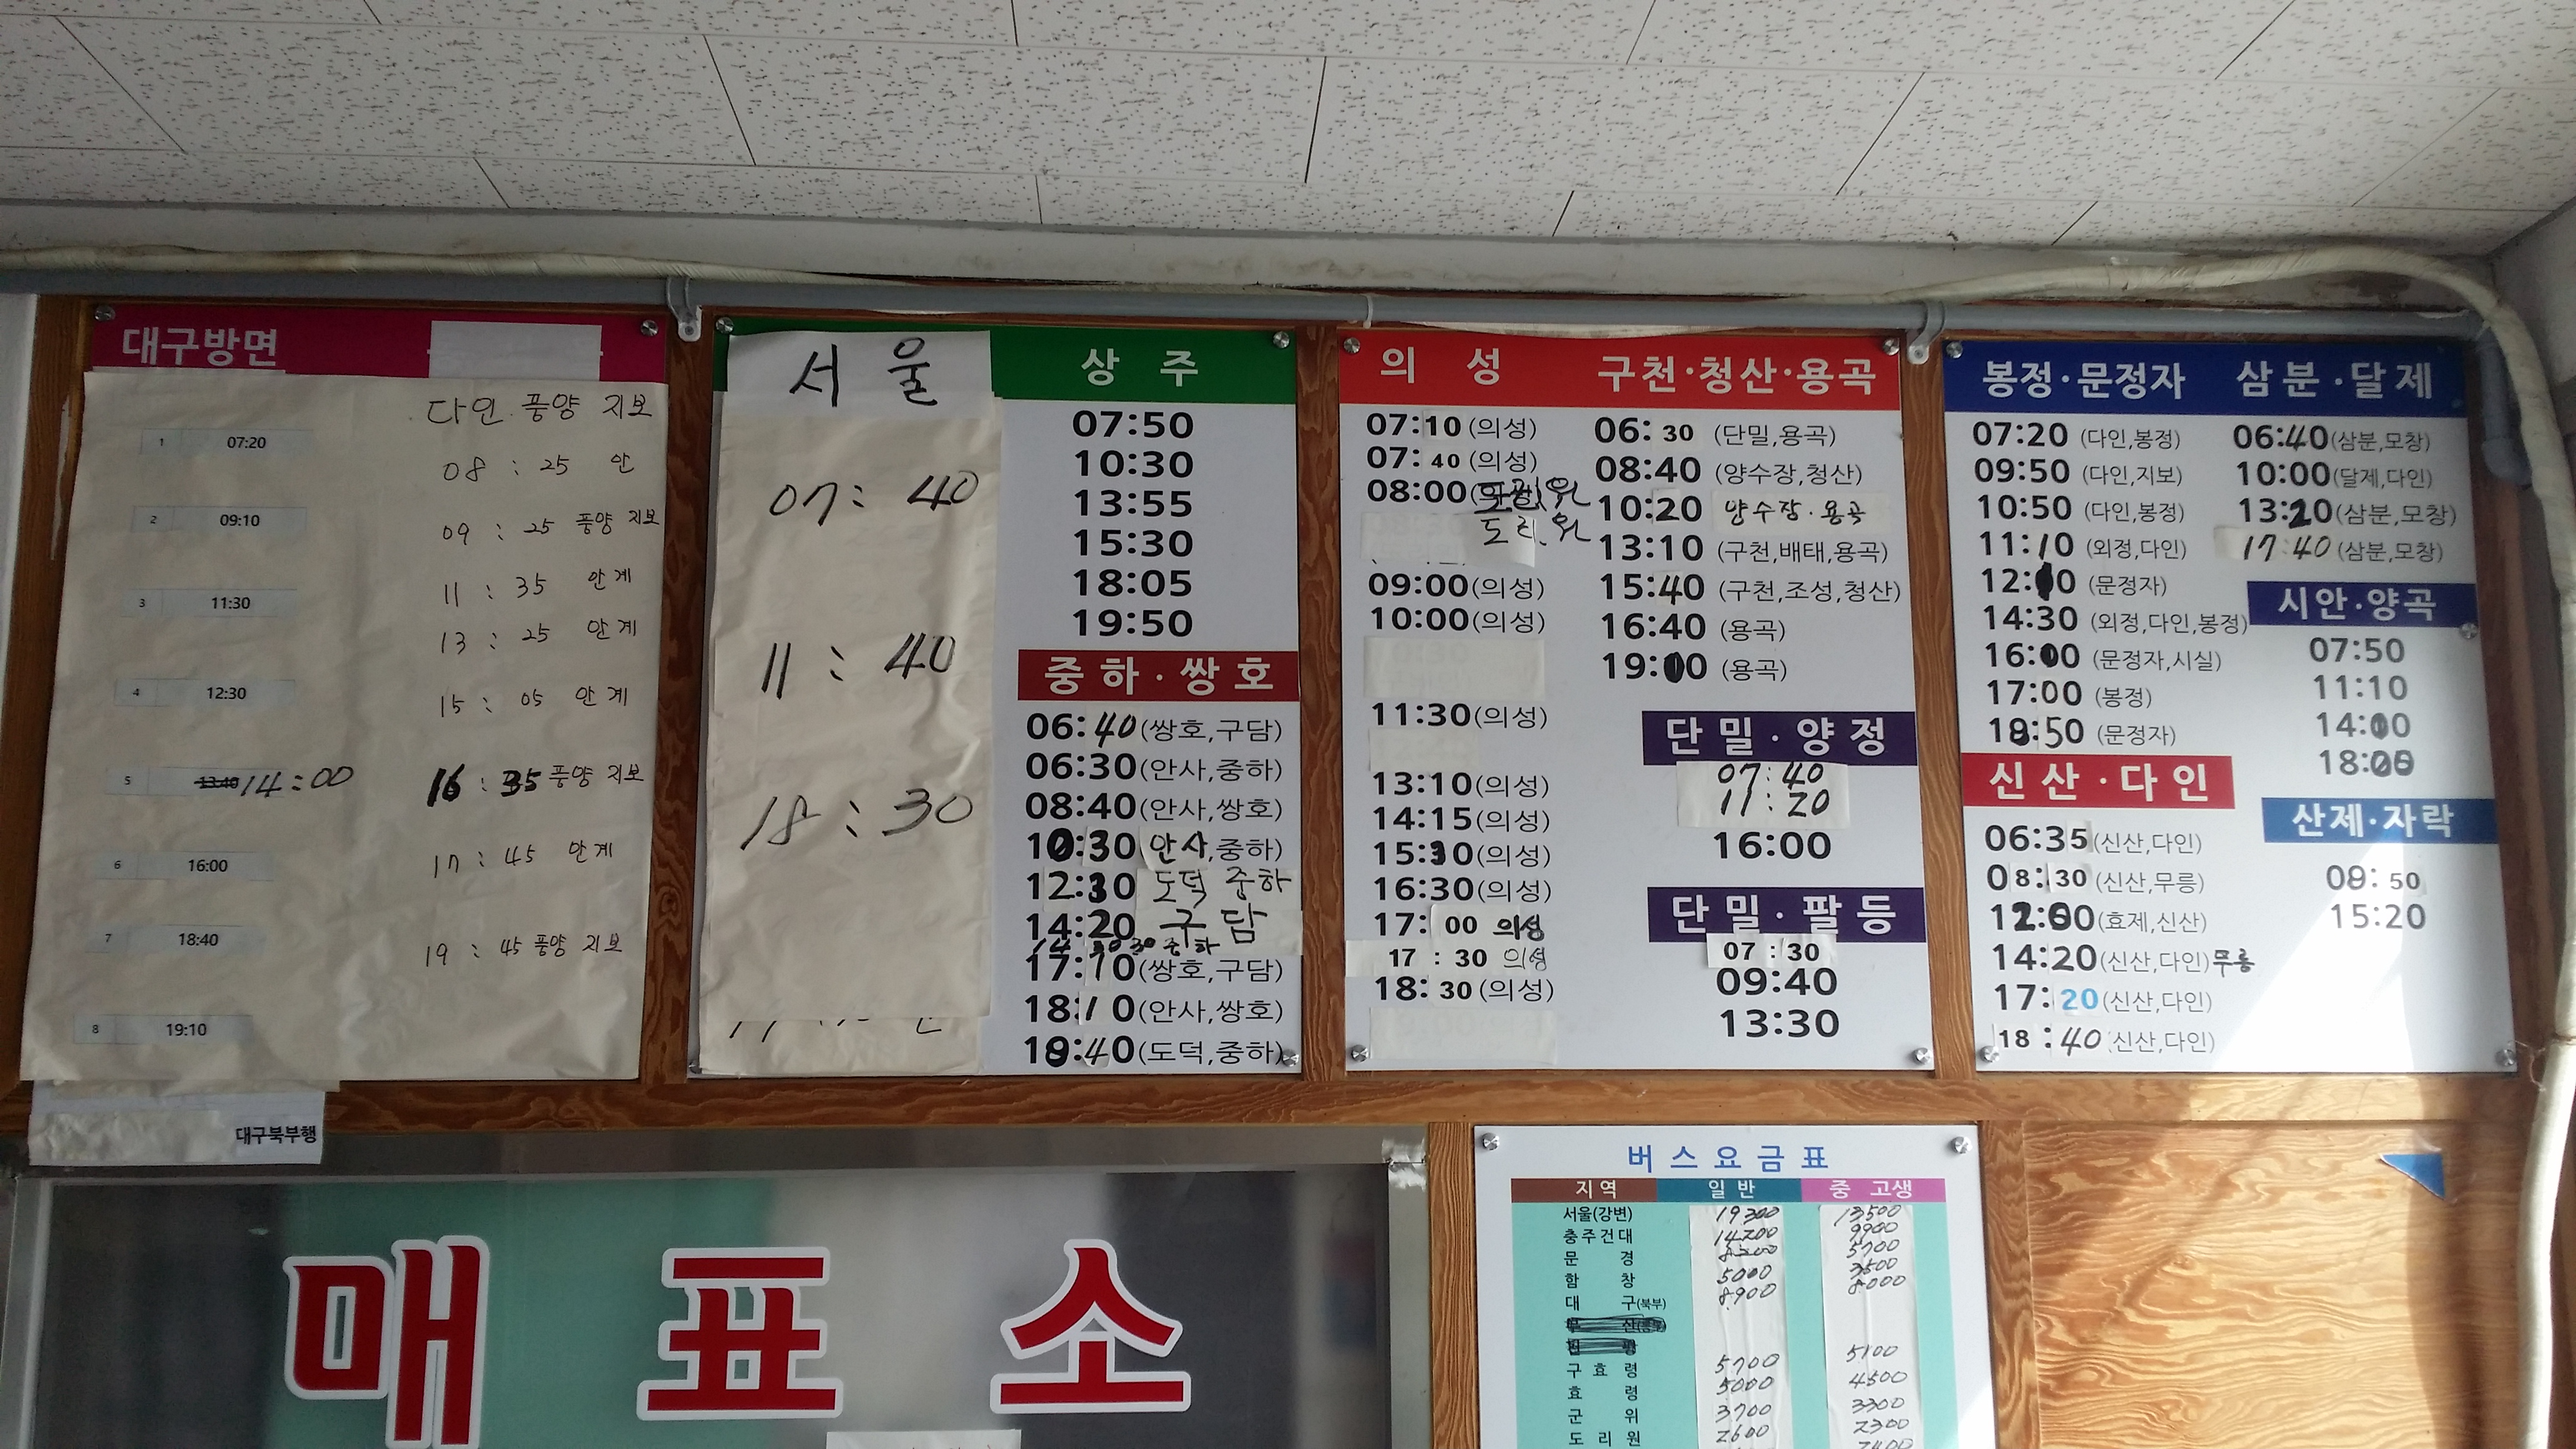 대구방면
1 07:20
2 09:10
3 11:30
4 12:30
5 13:40 14:00
6 16:00
7 18:40
8 19:10
대구북부행
다인 풍양 지보
08 : 25 안
09 : 25 풍양 지보
11 : 35 안계
13 : 25 안계
15 : 05 안계
16 : 35 풍양 지보
17 : 45 안계
19 : 45 풍양 지보
서 울
07 : 40
11 : 40
18 : 30
상 주
07:50
10:30
13:55
15:30
18:05
19:50
중 하 · 쌍 호
06:40(쌍호,구담)
06:30(안사,중하)
08:40(안사,쌍호)
10:30 안사,중하)
12:30 도덕 중하
14:20 구담
중하
17:10(쌍호,구담)
18:10(안사,쌍호)
19:40(도덕,중하)
의 성
07:10(의성)
07:40(의성)
08:00
도리.원
09:00(의성)
10:00(의성)
11:30(의성)
13:10(의성)
14:15(의성)
15:30(의성)
16:30(의성)
17:00 의성
17 : 30 의성
18:30(의성)
구천·청산·용곡
06:30 (단밀,용곡)
08:40 (양수장,청산)
10:20 양수장·용곡
13:10 (구천,배태,용곡)
15:40 (구천,조성,청산)
16:40 (용곡)
19:00 (용곡)
단 밀 · 양 정
07:40
11:20
16:00
단 밀 · 팔 등
07 : 30
09:40
13:30
봉정·문정자
07:20 (다인,봉정)
09:50 (다인,지보)
10:50 (다인,봉정)
11:10 (외정,다인)
(문정자)
14:30 (외정,다인,봉정)
16:00 (문정자,시실)
17:00 (봉정)
18:50 (문정자)
신 산 · 다 인
06:35(신산,다인)
08:30(신산,무릉)
12:00(효제,신산)
14:20(신산,다인)무릉
17:20(신산,다인)
18:40(신산,다인)
삼 분 · 달 제
06:40(삼분,모창)
10:00(달제,다인)
13:20(삼분,모창)
17:40(삼분,모창)
시안·양곡
07:50
11:10
14:00
18:00
산제·자락
08:50
15:20
버 스 요 금 표
지 역 일 반 중 고생
서울(강변) 19300 13500
충주건대 14200 9900
문 경 8200 5700
함 창 5000 3500
대 구(북부) 8900 8000
구 효 령 5700 5100
효 령 5000 4500
군 위 3700 3300
도 리 원 2600 2300
매 표 소